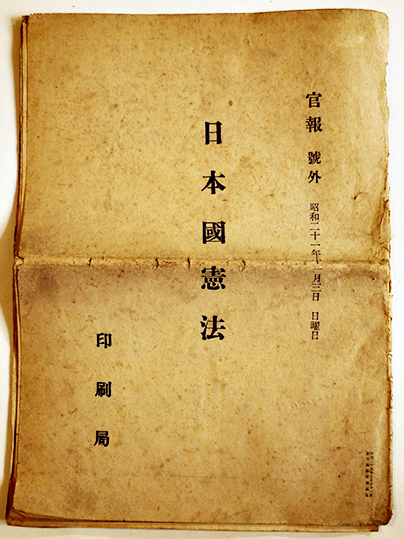 官報 號外 昭和二十一年十一月三日 日曜日
日本國憲法
印刷局